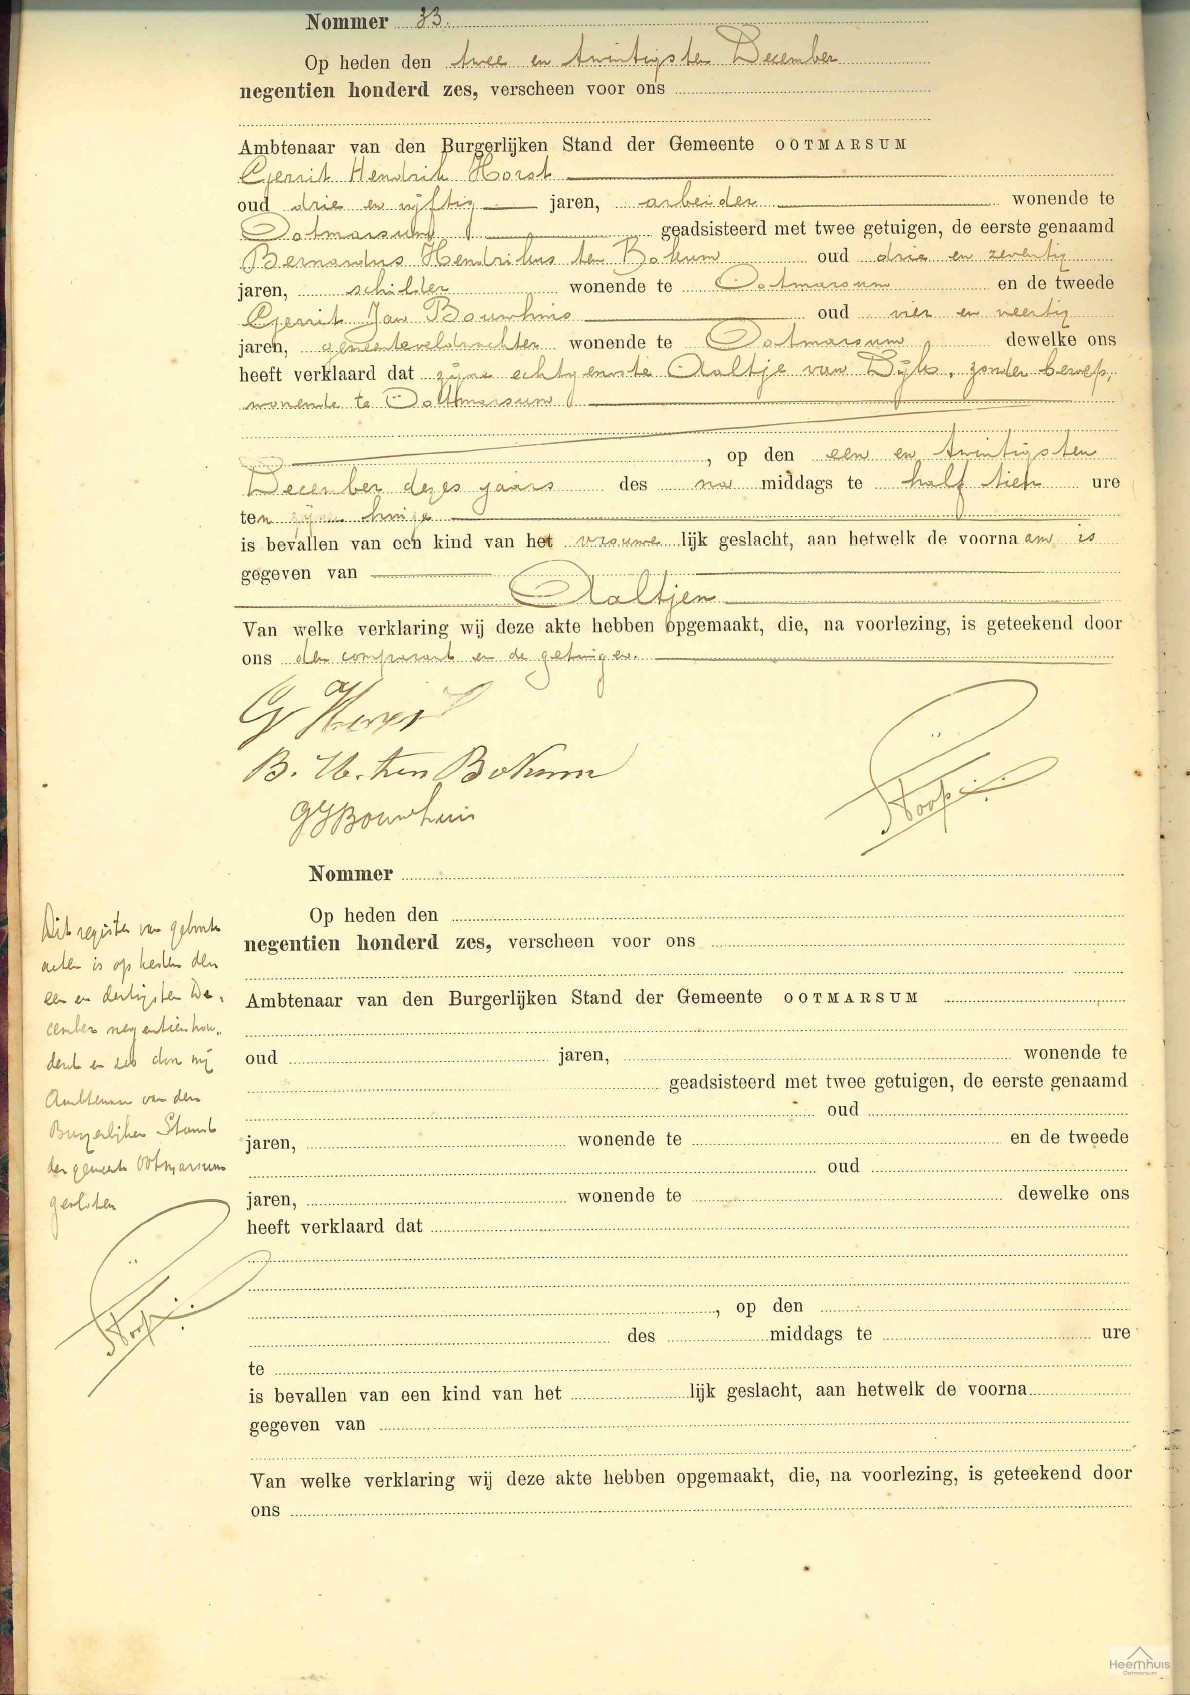 Nommer 33.
Op heden den twee en twintigsten December
negentien honderd zes, verscheen voor ons
Ambtenaar van den Burgerlijken Stand der Gemeente OOTMARSUM
Gerrit Hendrik Horst
oud drie en vijftig jaren, arbeider wonende te
Ootmarsum geadsisteerd met twee getuigen, de eerste genaamd
Bernardus Hendrikus ten Bokum oud drie en zeventig
jaren, schilder wonende te Ootmarsum en de tweede
Gerrit Jan Bouwhuis oud vier en veertig
jaren, gemeenteveldwachter wonende te Ootmarsum dewelke ons
heeft verklaard dat zijne echtgenoote Aaltje van Dijk, zonder beroep,
wonende te Ootmarsum
, op den een en twintigsten
December dezes jaars des na middags te half tien ure
ten zijnen huize
is bevallen van een kind van het vrouwelijk geslacht, aan hetwelk de voornaam is
gegeven van
Aaltjen
Van welke verklaring wij deze akte hebben opgemaakt, die, na voorlezing, is geteekend door
ons den comparant en de getuigen.
G Horst
B. H. ten Bokum
GJ Bouwhuis
Nommer
Op heden den
Dit register van geboorte
negentien honderd zes, verscheen voor ons
acten is op heden den
een en dertigsten De-
Ambtenaar van den Burgerlijken Stand der Gemeente OOTMARSUM
cember negentienhon-
oud jaren, wonende te
derd en zes door mij
geadsisteerd met twee getuigen, de eerste genaamd
Ambtenaar van den
oud
Burgerlijken Stand
jaren, wonende te en de tweede
der gemeente Ootmarsum
oud
gesloten
jaren, wonende te dewelke ons
heeft verklaard dat
, op den
des middags te ure
te
is bevallen van een kind van het lijk geslacht, aan hetwelk de voorna
gegeven van
Van welke verklaring wij deze akte hebben opgemaakt, die, na voorlezing, is geteekend door
ons
Heemhuis
Ootmarsum